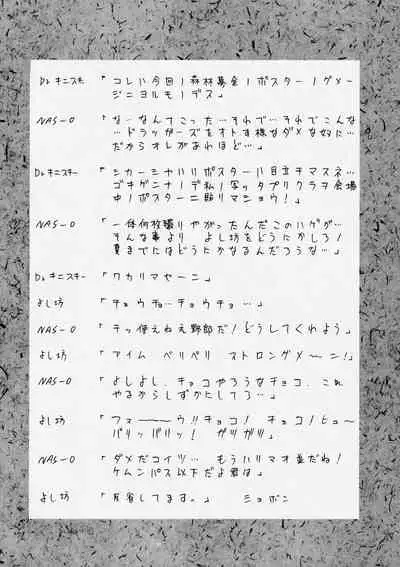 Dr.キニスキー 「コレハ今回ノ森林募金ノポスターノダメージニヨルモノデス」
NAS-O 「なーなんてこった…それで…それでこんな
…ドラッガーズをオトす様なダメな奴に…
だからオレがあれほど…」
Dr.キニスキー 「シカーシナハリポスターハ目立チマスネ…
ゴキゲンナノデ私ノ写ッタプリクラヲ会場
中ノポスターニ貼リマショウ!」
NAS-O 「一体何枚撮りやがったんだこのハゲが…
そんな事より よし坊をどうにかしろ!
夏までにはどうにかなるんだろうな…」
Dr.キニスキー 「ワカリマセーン」
よし坊 「チョウチョ…チョウチョ…」
NAS-O 「チッ使えねえ野郎だ!どうしてくれよう」
よし坊 「アイム ベリベリ ストロングメ〜ーン!」
NAS-O 「よしよし、チョコやろうなチョコ、これ
やるからしずかにしてろ…」
よし坊 「フォーーーウ!!チョコ! チョコ!ヒューー
バリッバリッ! ガツガツ」
NAS-O 「ダメだコイツ… もうハリマオ並だね!
ケムンパス以下だよ君は」
よし坊 「反省してます。」 ションボリ